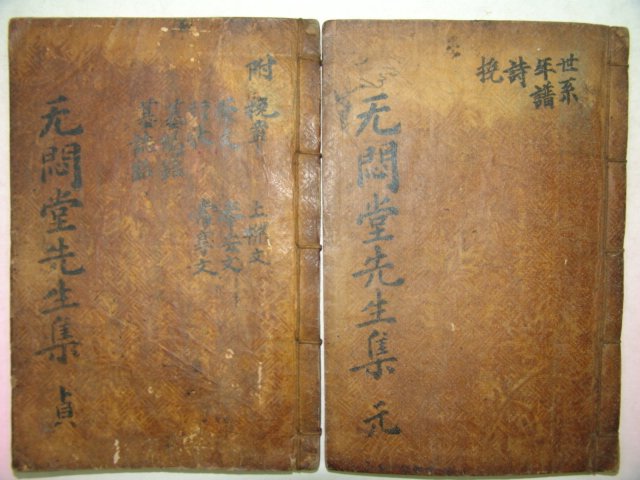 世系
年譜
詩
挽
无悶堂先生集 元
附 挽章
祭文
上樑文
奉安文
常享文
无悶堂先生集 貞